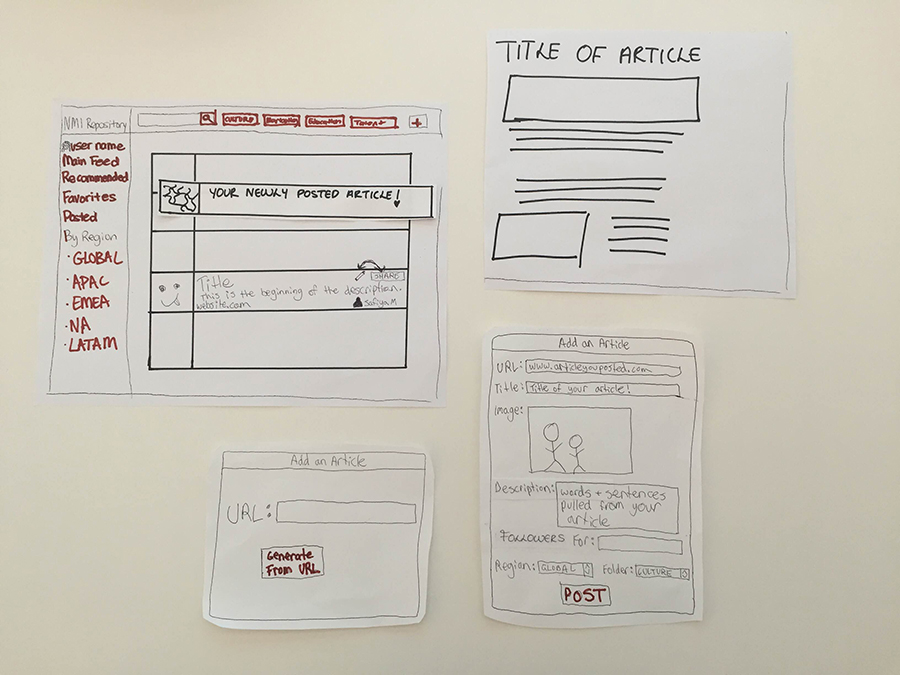 TITLE OF ARTICLE
NMI Repository
CULTURE
Marketing
Education
Talent
+
@user name
Main Feed
Recommended
Favorites
Posted
By Region
• GLOBAL
• APAC
• EMEA
• NA
• LATAM
YOUR NEWLY POSTED ARTICLE!
Title
SHARE
This is the beginning of the description.
website.com
SafiyaM
Add an Article
URL:
Generate
From URL
Add an Article
URL: www.articleyouposted.com
Title: Title of your article!
Image:
Description: words + sentences
pulled from your
article
FOLLOWERS For:
Region: GLOBAL Folder: CULTURE
POST